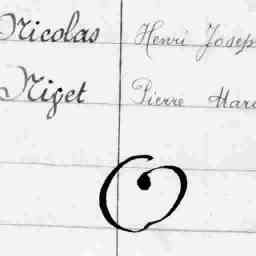 Nicolas Henri Josep
Niget Pierre Mari